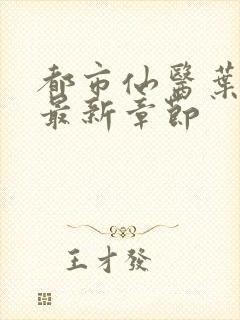 都市仙醫葉
最新章節
王才發